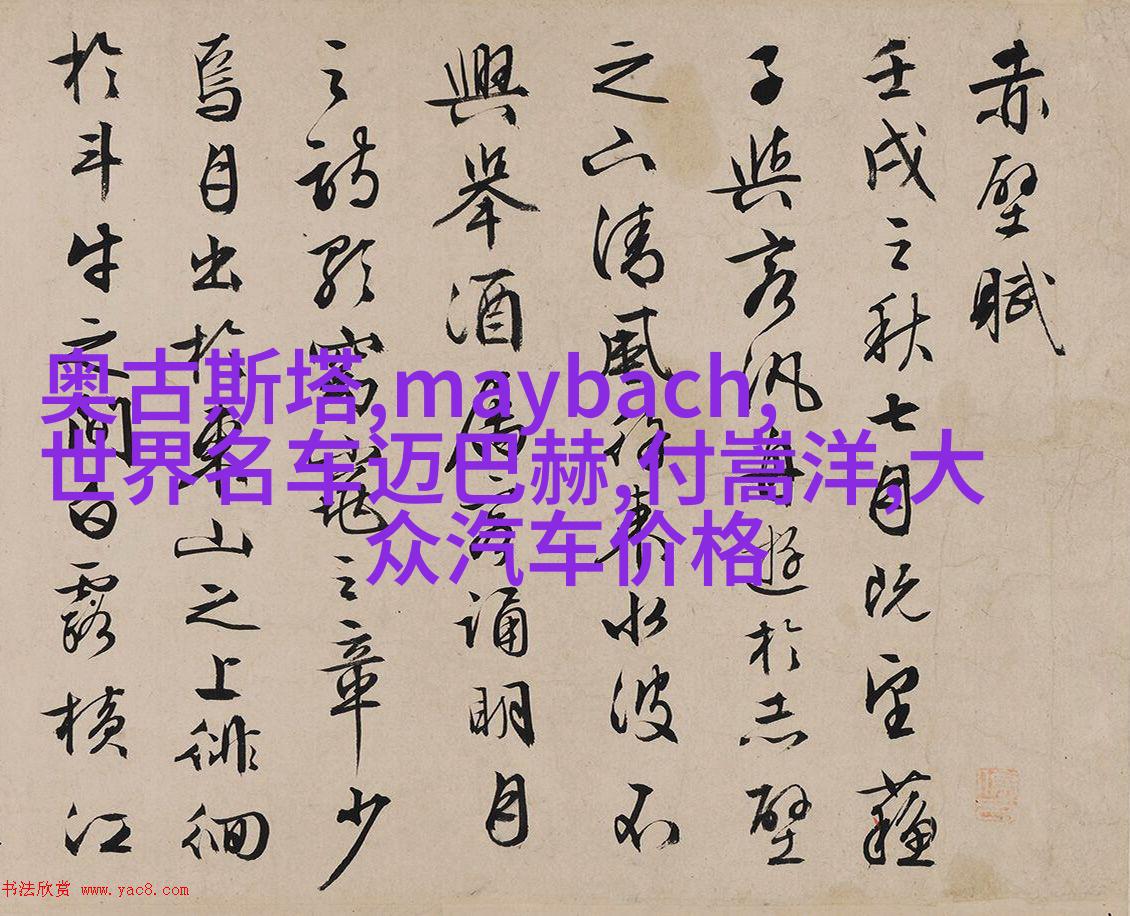 赤壁賦
壬戌之秋七月既望蘇
子與客汎舟遊於赤壁
之下清風徐來水波不
興舉酒屬客誦明月
之詩歌窈窕之章少
焉月出於東山之上徘徊
於斗牛之間白露橫江
奥古斯塔,maybach,
世界名车迈巴赫,付嵩洋,大
众汽车价格
书法欣赏 www.yac8.com